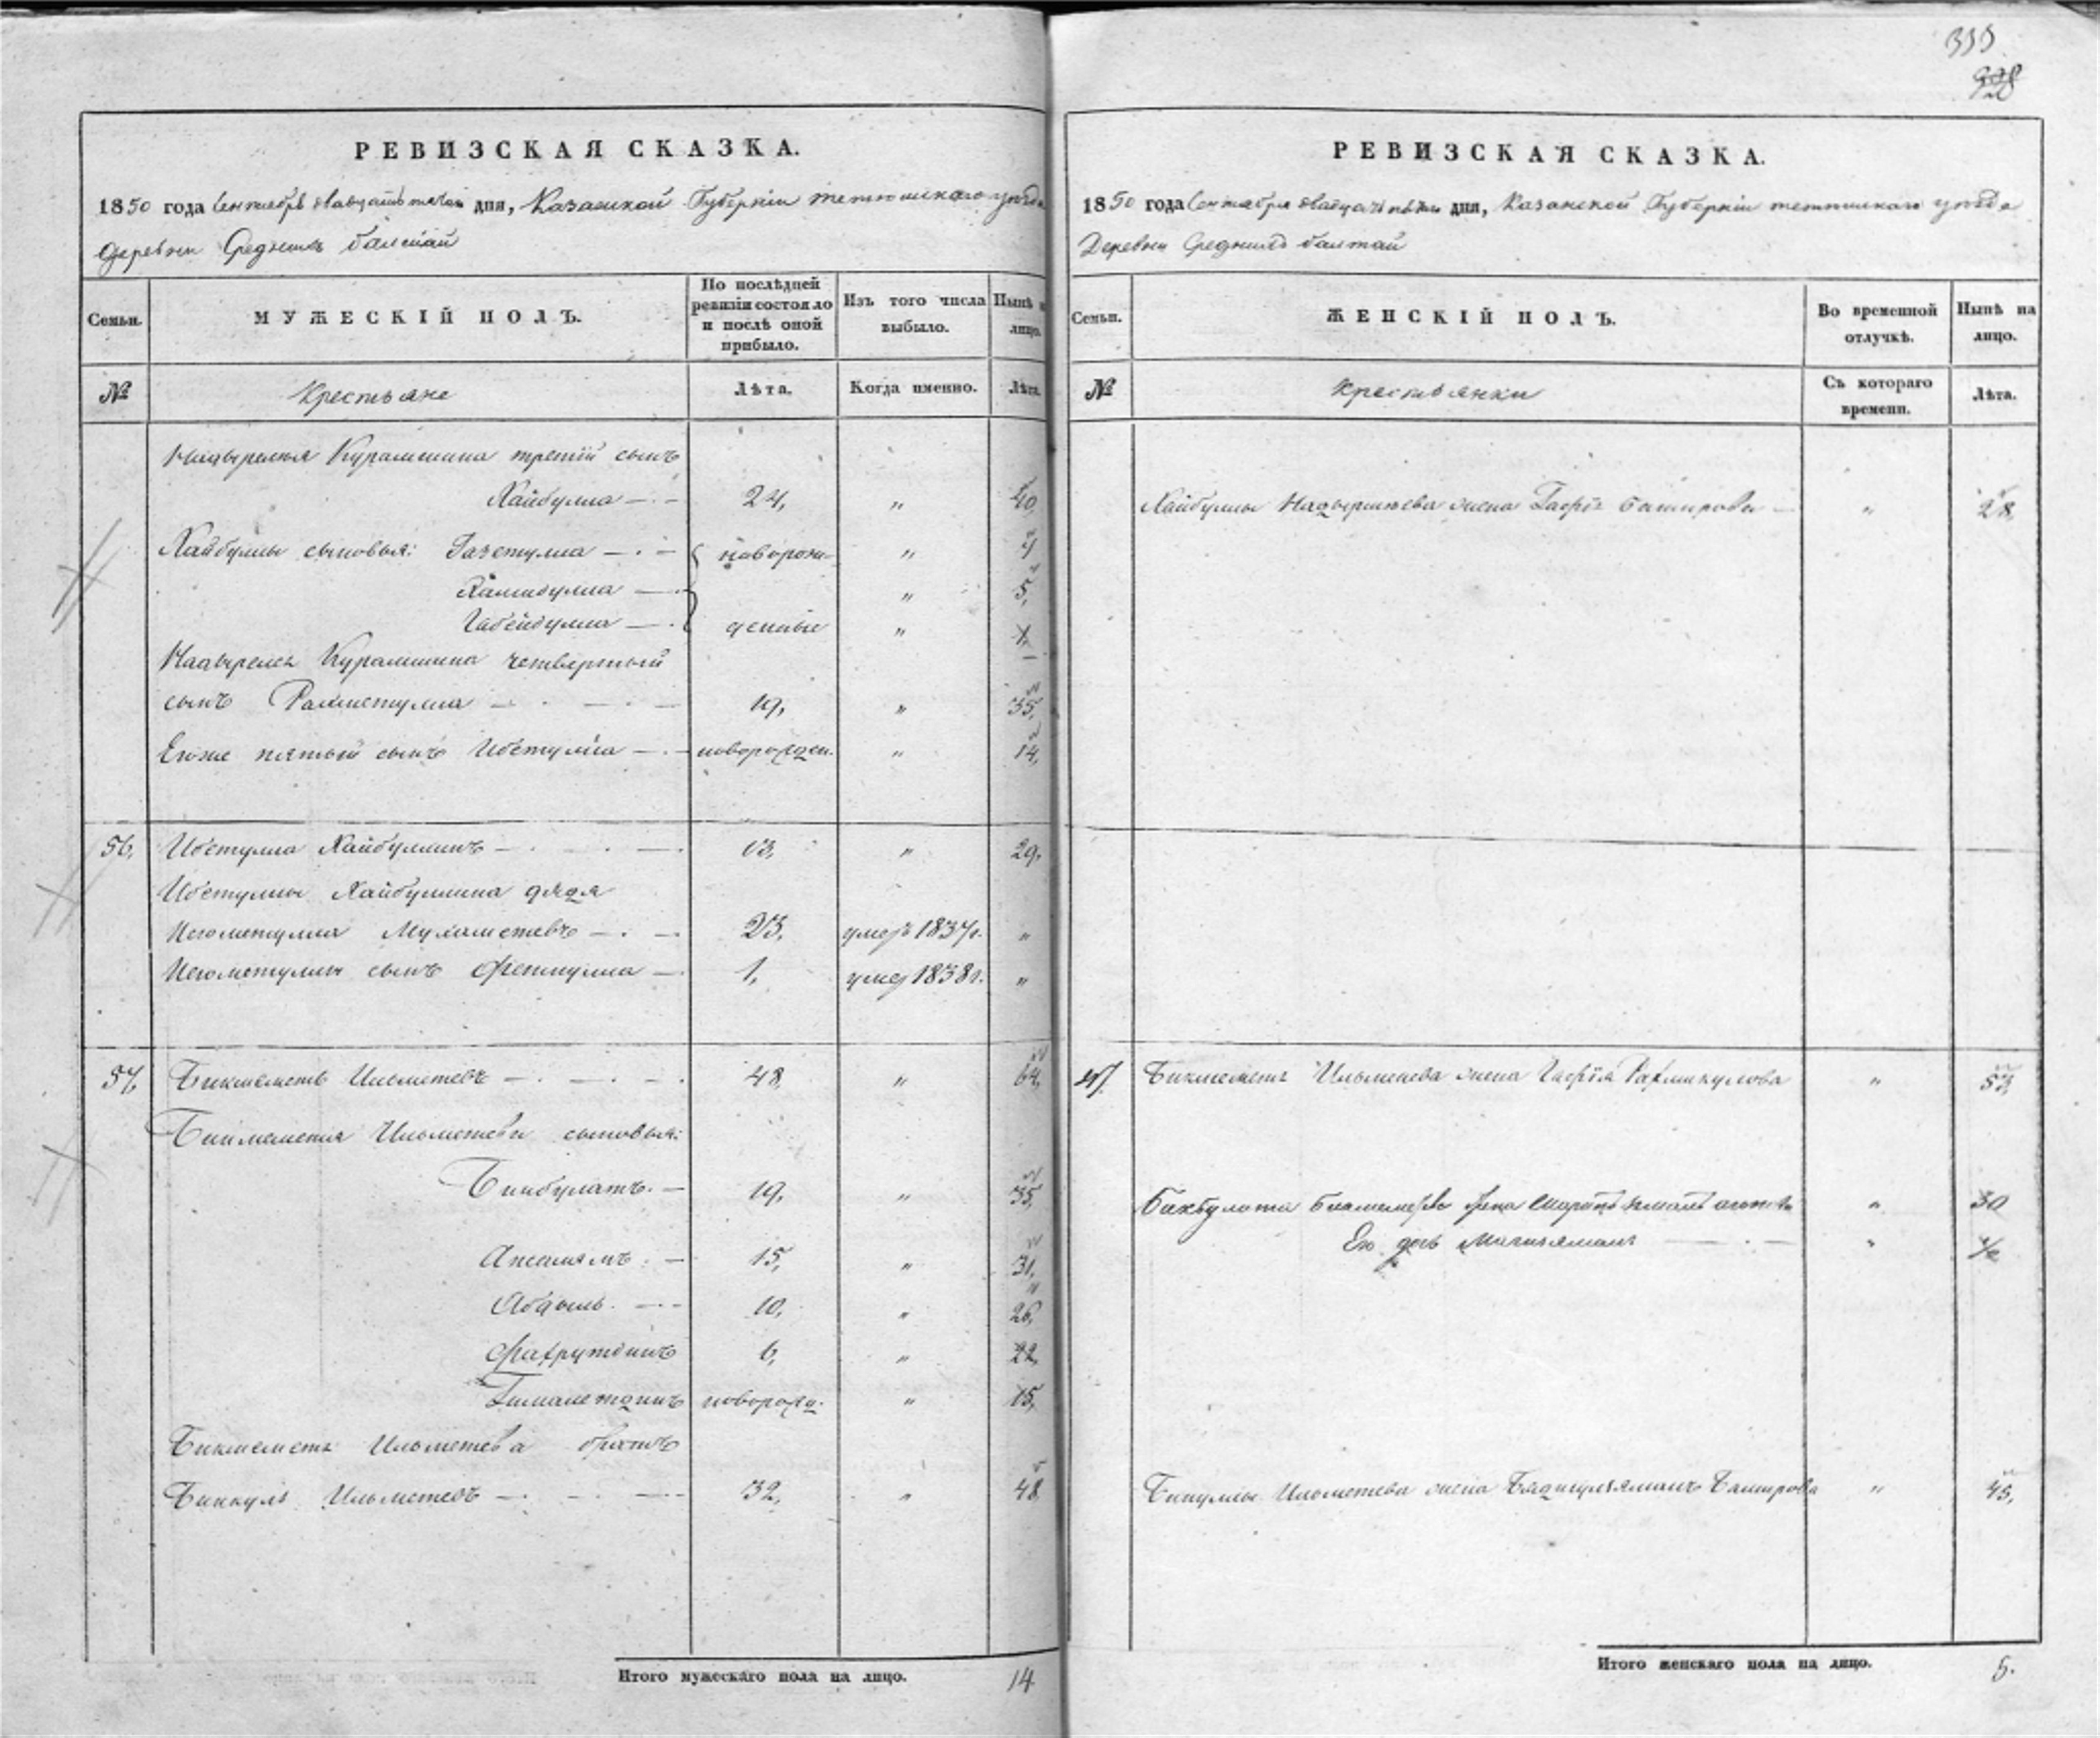 333
РЕВИЗСКАЯ СКАЗКА.
1850 года Сентября двадцать дня, Казанской Губерніи тетюшскаго уѣзда
Деревни Среднихъ балтай
Семьи.
МУЖЕСКІЙ ПОЛЪ.
По послѣдней ревизіи состояло и послѣ оной прибыло.
Изъ того числа выбыло.
Нынѣ на лицо.
№
Крестьяне
Лѣта.
Когда именно.
Лѣта.
Надыремя Курамшина третій сынъ
Хайбулла — 24, " 40
Хайбуллы сыновья: Газетулла — новорож- " 7
" 5,
Габейдулла — денные "
Курамшина четвертый
сынъ Рахметулла — 19, " 35,
Егоже пятый сынъ Ибетулла — новорожден. " 14,
56, Ибетулла Хайбуллинъ — 13, " 29,
Ибетуллы Хайбуллина дядя
Негометулла Мухаметевъ — 23, умеръ 1837г. "
Негометуллы сынъ Феткулла — 1, умер 1838г. "
57, Бикмеметь Ильметевъ — 48, " 64,
Бикмеметя Ильметева сыновья:
Бикбулатъ — 19, " 35,
Апсалямъ — 15, " 31,
Абдылъ — 10, " 26,
Фахрутдинъ 6, " 22,
Гималетдинъ новорожд. " 15,
Бикмеметя Ильметева братъ
Биккулъ Ильметевъ — 32, " 48
Итого мужескаго пола на лицо. 14
РЕВИЗСКАЯ СКАЗКА.
1850 года Сентября двадцать дня, Казанской Губерніи тетюшскаго уѣзда
Деревни Среднихъ балтай
Семьи.
ЖЕНСКІЙ ПОЛЪ.
Во временной отлучкѣ.
Нынѣ на лицо.
№
Крестьянки
Съ котораго времени.
Лѣта.
Хайбуллы жена Баширова — " 28,
57. Бикмеметя Ильметева жена Рахманкулова " 53,
Бикбулата жена " 30
Его дочь — "
Ильметева жена Баширова " 45,
Итого женскаго пола на лицо. 5.